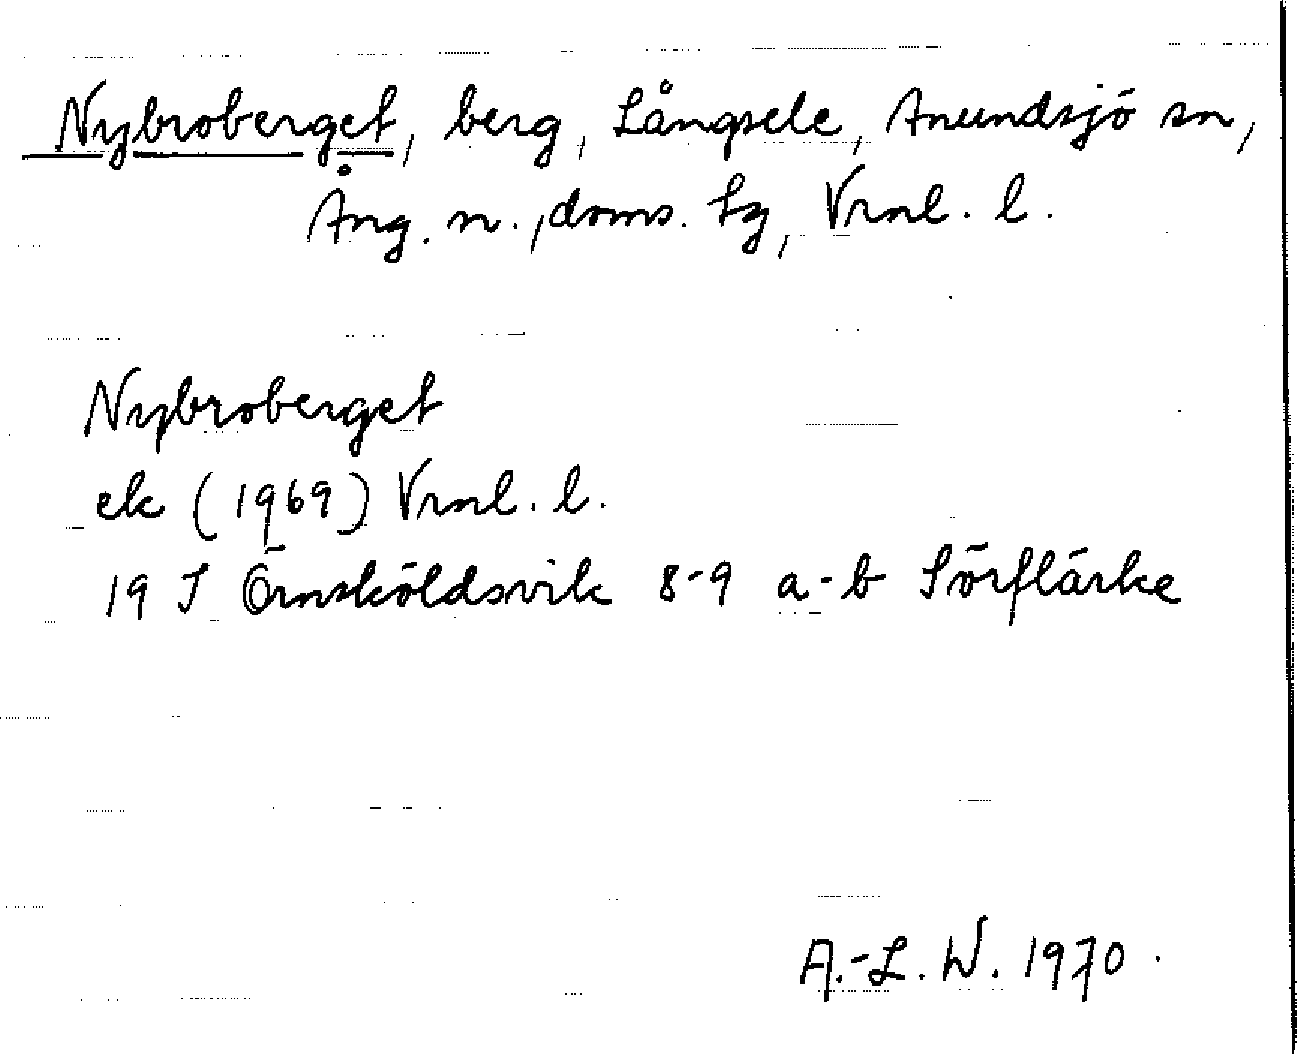 Nybroberget, berg, Långsele, Anundsjö sn,
Ång. n., doms. hg, Vrnl. l.
Nybroberget
ek (1969) Vrnl. l.
19 J Örnsköldsvik 8-9 a-b Sörflärke
A.-L. W. 1970.